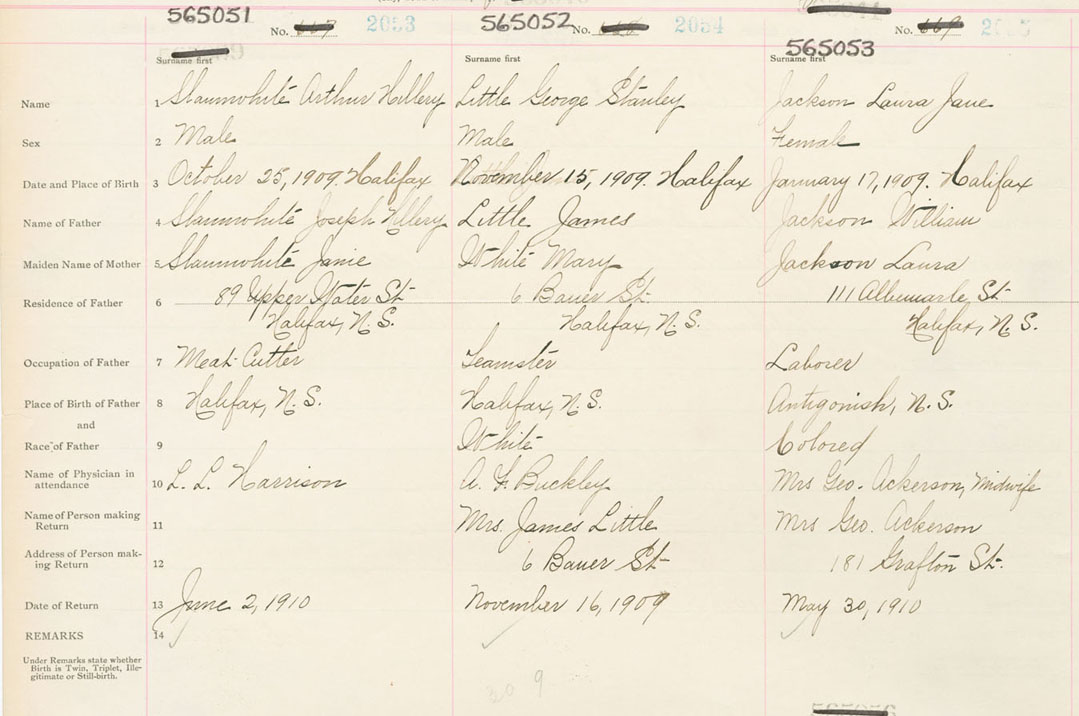 565051
565052
565053
No. 2053
No. 2054
No. 669
Surname first
Surname first
Surname first
Name 1 Slaunwhite Arthur Hillery Little George Stanley Jackson Laura Jane
Sex 2 Male Male Female
Date and Place of Birth 3 October 25, 1909. Halifax November 15, 1909. Halifax January 17, 1909. Halifax
Name of Father 4 Slaunwhite Joseph Hillery Little James Jackson William
Maiden Name of Mother 5 Slaunwhite Janie White Mary Jackson Laura
Residence of Father 6 89 Upper Water St. 6 Bauer St. 111 Albemarle St
Halifax, N.S. Halifax, N.S. Halifax, N.S.
Occupation of Father 7 Meat Cutter Teamster Laborer
Place of Birth of Father 8 Halifax, N.S. Halifax, N.S. Antigonish, N.S.
and
Race of Father 9 White Colored
Name of Physician in
attendance 10 L. L. Harrison A. F. Buckley Mrs Geo. Ackerson, Midwife
Name of Person making
Return 11 Mrs. James Little Mrs Geo. Ackerson
Address of Person mak-
ing Return 12 6 Bauer St 181 Grafton St.
Date of Return 13 June 2, 1910 November 16, 1909 May 30, 1910
REMARKS 14
Under Remarks state whether
Birth is Twin, Triplet, Ille-
gitimate or Still-birth.
30 9